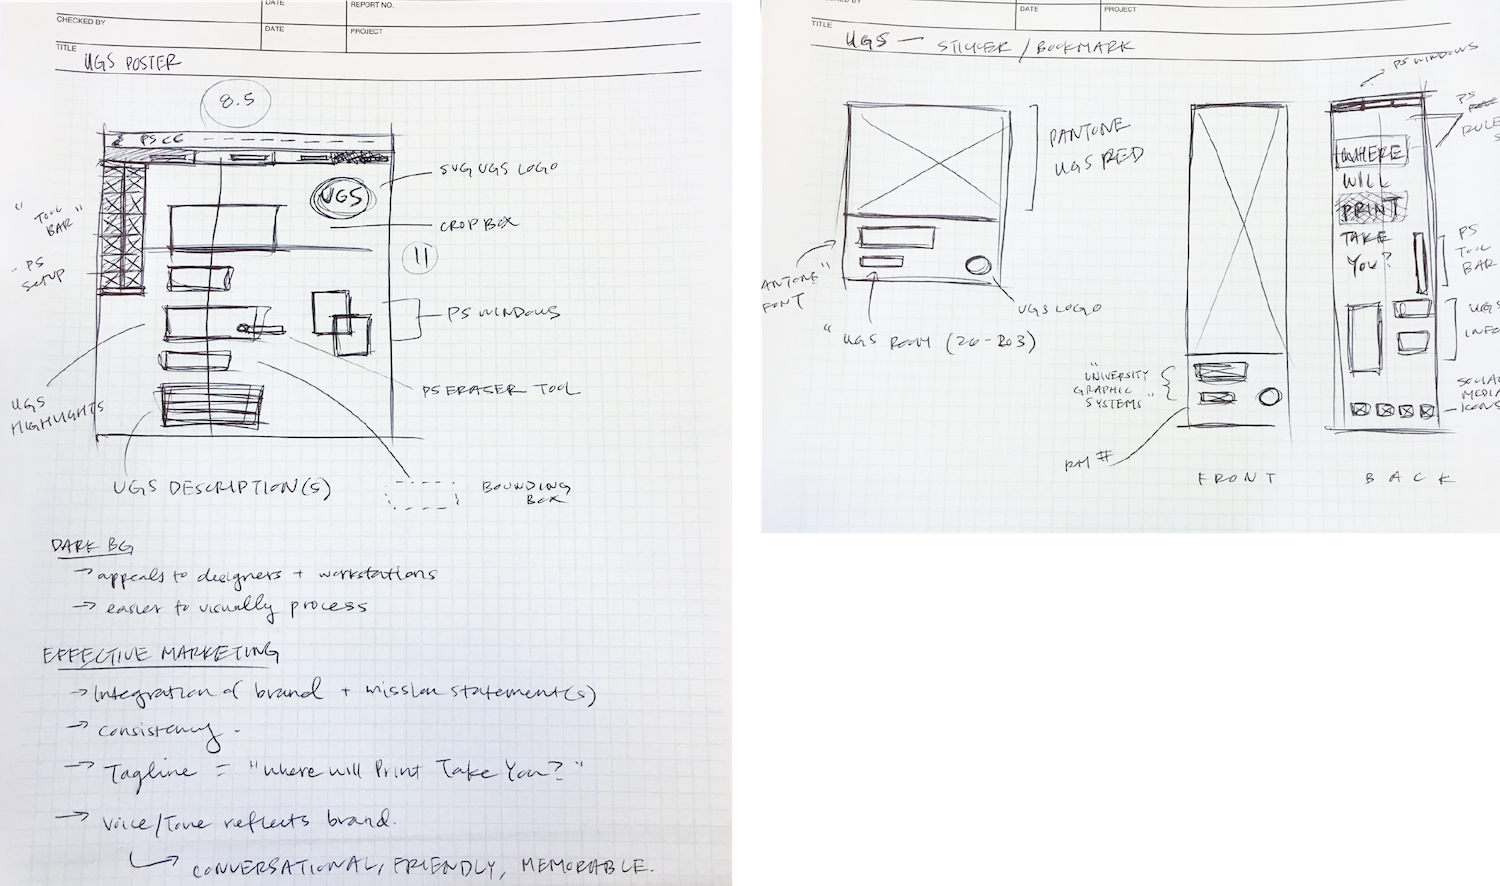 CHECKED BY
DATE
REPORT NO.
DATE
PROJECT
TITLE
UGS POSTER
8.5
PS CC
UGS
SVG UGS LOGO
CROP BOX
11
"TOOL
BAR"
- PS
SETUP
PS WINDOWS
PS ERASER TOOL
UGS
HIGHLIGHTS
UGS DESCRIPTION(S)
BOUNDING
BOX
DARK BG
→ appeals to designers + workstations
→ easier to visually process
EFFECTIVE MARKETING
→ Integration of brand + mission statement(s)
→ consistency.
→ Tagline = "Where will Print Take You?"
→ Voice/Tone reflects brand.
→ CONVERSATIONAL, FRIENDLY, MEMORABLE.
ED BY
DATE
PROJECT
TITLE
UGS — STICKER / BOOKMARK
PANTONE
UGS RED
"
ANTONE"
FONT
UGS LOGO
"UGS ROOM (26-203)
"UNIVERSITY
GRAPHIC
SYSTEMS"
RM #
FRONT
PS WINDOWS
PS
RULE
WHERE
WILL
PRINT
TAKE
YOU?
PS
TOOL
BAR
UGS
INFO
SOCIAL
MEDIA
ICONS
BACK